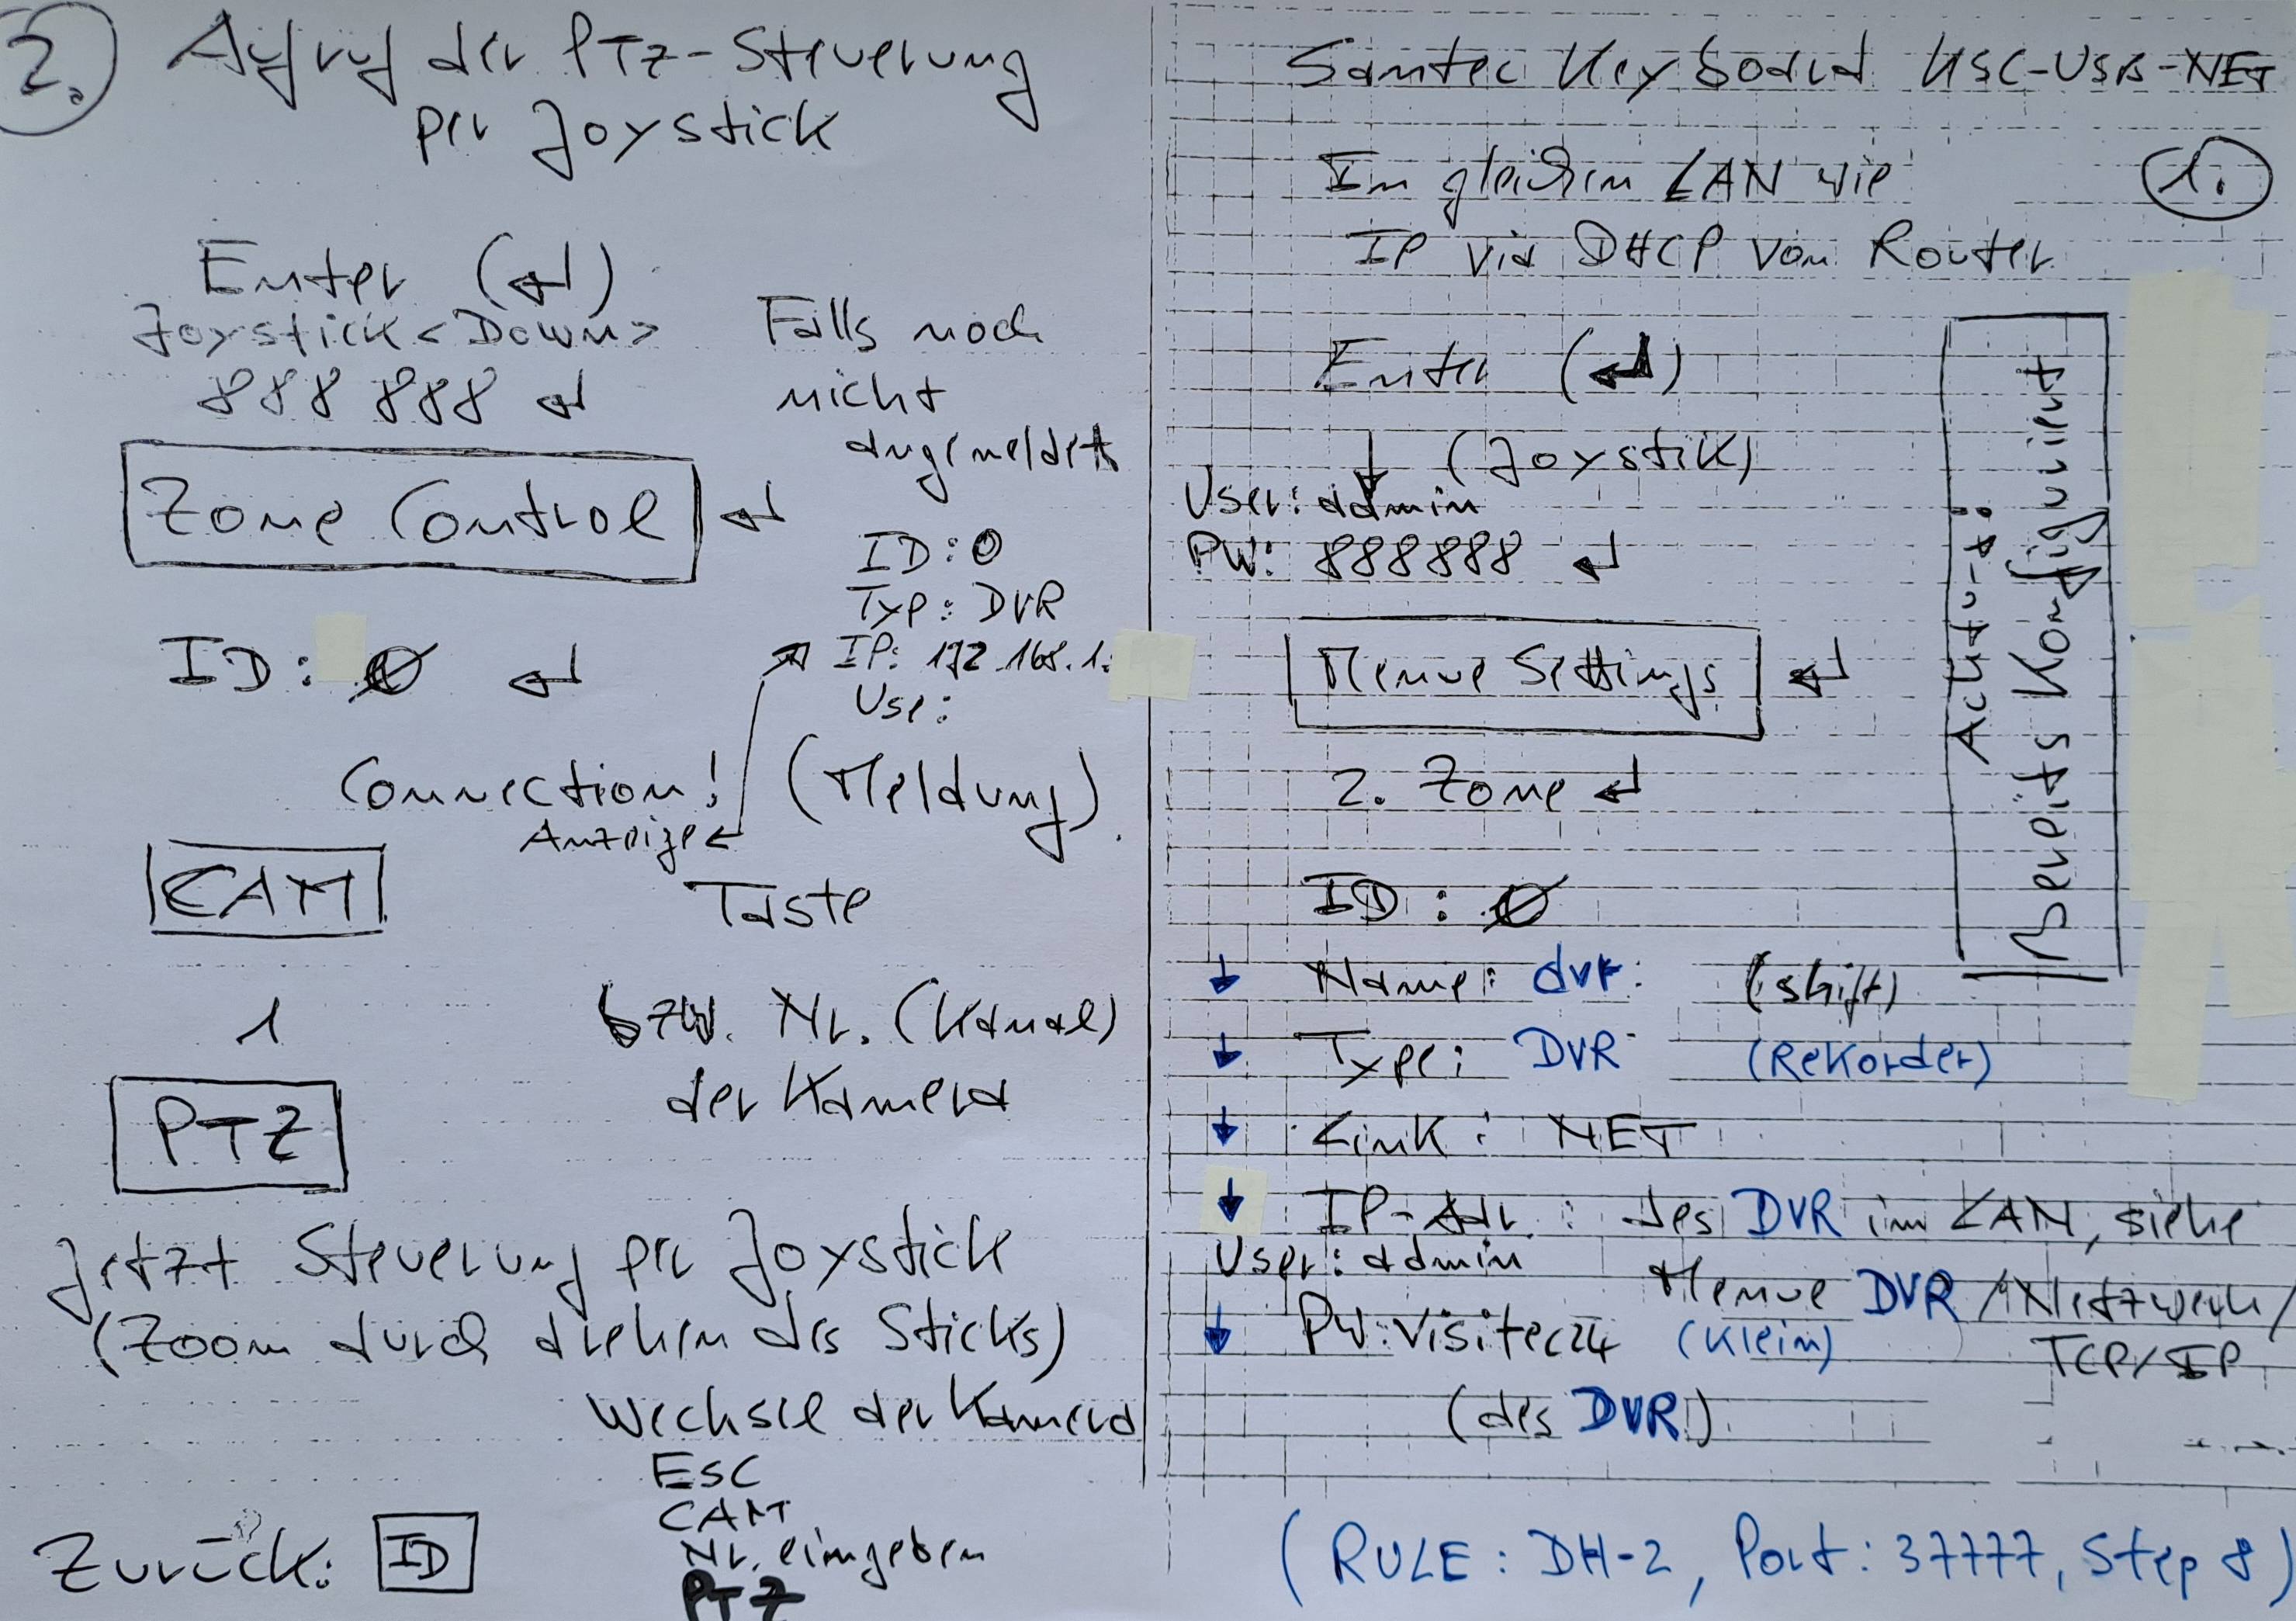 2.
Aufruf der PTZ-Steuerung
per Joystick
Enter (↵)
Joystick <Down>
888 888 ↵
Falls noch
nicht
angemeldet
Zone Control ↵
ID: 0
Typ: DVR
IP: 192.168.1.
Use:
ID: Ø ↵
Connection! (Meldung)
Anzeige
CAM Taste
1 bzw. Nr. (Kanal)
der Kamera
PTZ
Jetzt Steuerung per Joystick
(Zoom durch drehen des Sticks)
Wechsel der Kamera
ESC
CAM
Nr. eingeben
PTZ
Zurück: ID
Santec Keyboard KSC-USB-NET
1.
Im gleichen LAN wie
IP via DHCP von Router
Enter (↵)
↓ (Joystik)
User: admin
PW: 888888 ↵
Menue Settings ↵
2. Zone ↵
ID: Ø
↓ Name: dvr (shift)
↓ Type: DVR (Rekorder)
↓ Link: NET
↓ IP-Adr.: des DVR im LAN, siehe
Menue DVR/Netzwerk/
TCP/IP
User: admin
↓ PW: visitec24 (klein)
(des DVR)
(RULE: DH-2, Port: 37777, Step 8)
Achtung:
Bereits Konfiguriert